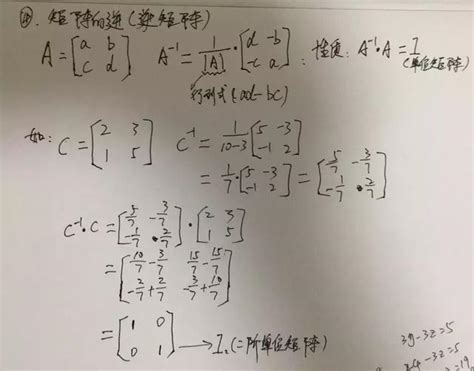 ④. 矩阵的逆 (逆矩阵)
A = [a b; c d] A⁻¹ = 1/|A| · [d -b; -c a] 性质: A⁻¹·A = I (单位矩阵)
行列式 (ad-bc)
如: C = [2 3; 1 5] C⁻¹ = 1/(10-3) [5 -3; -1 2]
= 1/7 · [5 -3; -1 2] = [5/7 -3/7; -1/7 2/7]
C⁻¹·C = [5/7 -3/7; -1/7 2/7] · [2 3; 1 5]
= [10/7-3/7 15/7-15/7; -2/7+2/7 -3/7+10/7]
= [1 0; 0 1] → I₂ (二阶单位矩阵)
3y-3z=5